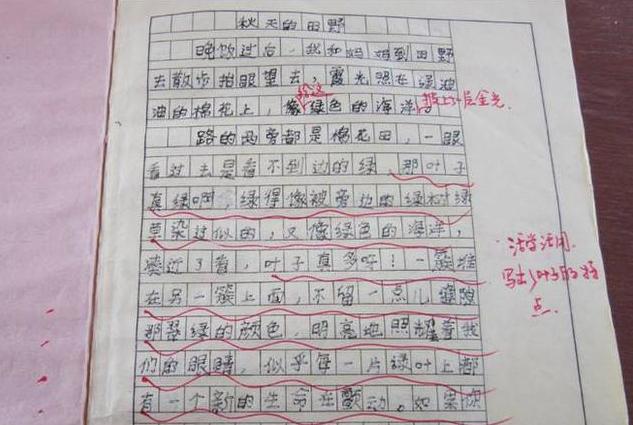 秋天的田野
晚饭过后，我和妈妈到田野
去散步抬眼望去，霞光照在绿油
油的棉花上，像给这绿色的海洋披上一层金光。
路的两旁都是棉花田，一眼
看过去是看不到边的绿，那叶子
真绿啊，绿得像被旁边的绿树绿
草染过似的，又像绿色的海洋，
凑近了看，叶子真多呀！一簇堆
在另一簇上面，不留一点儿缝隙
那翠绿的颜色，明亮地照耀着我
们的眼睛，似乎每一片绿叶上都
有一个新的生命在颤动。如果你
活学活用，
写出了叶子的特
点。